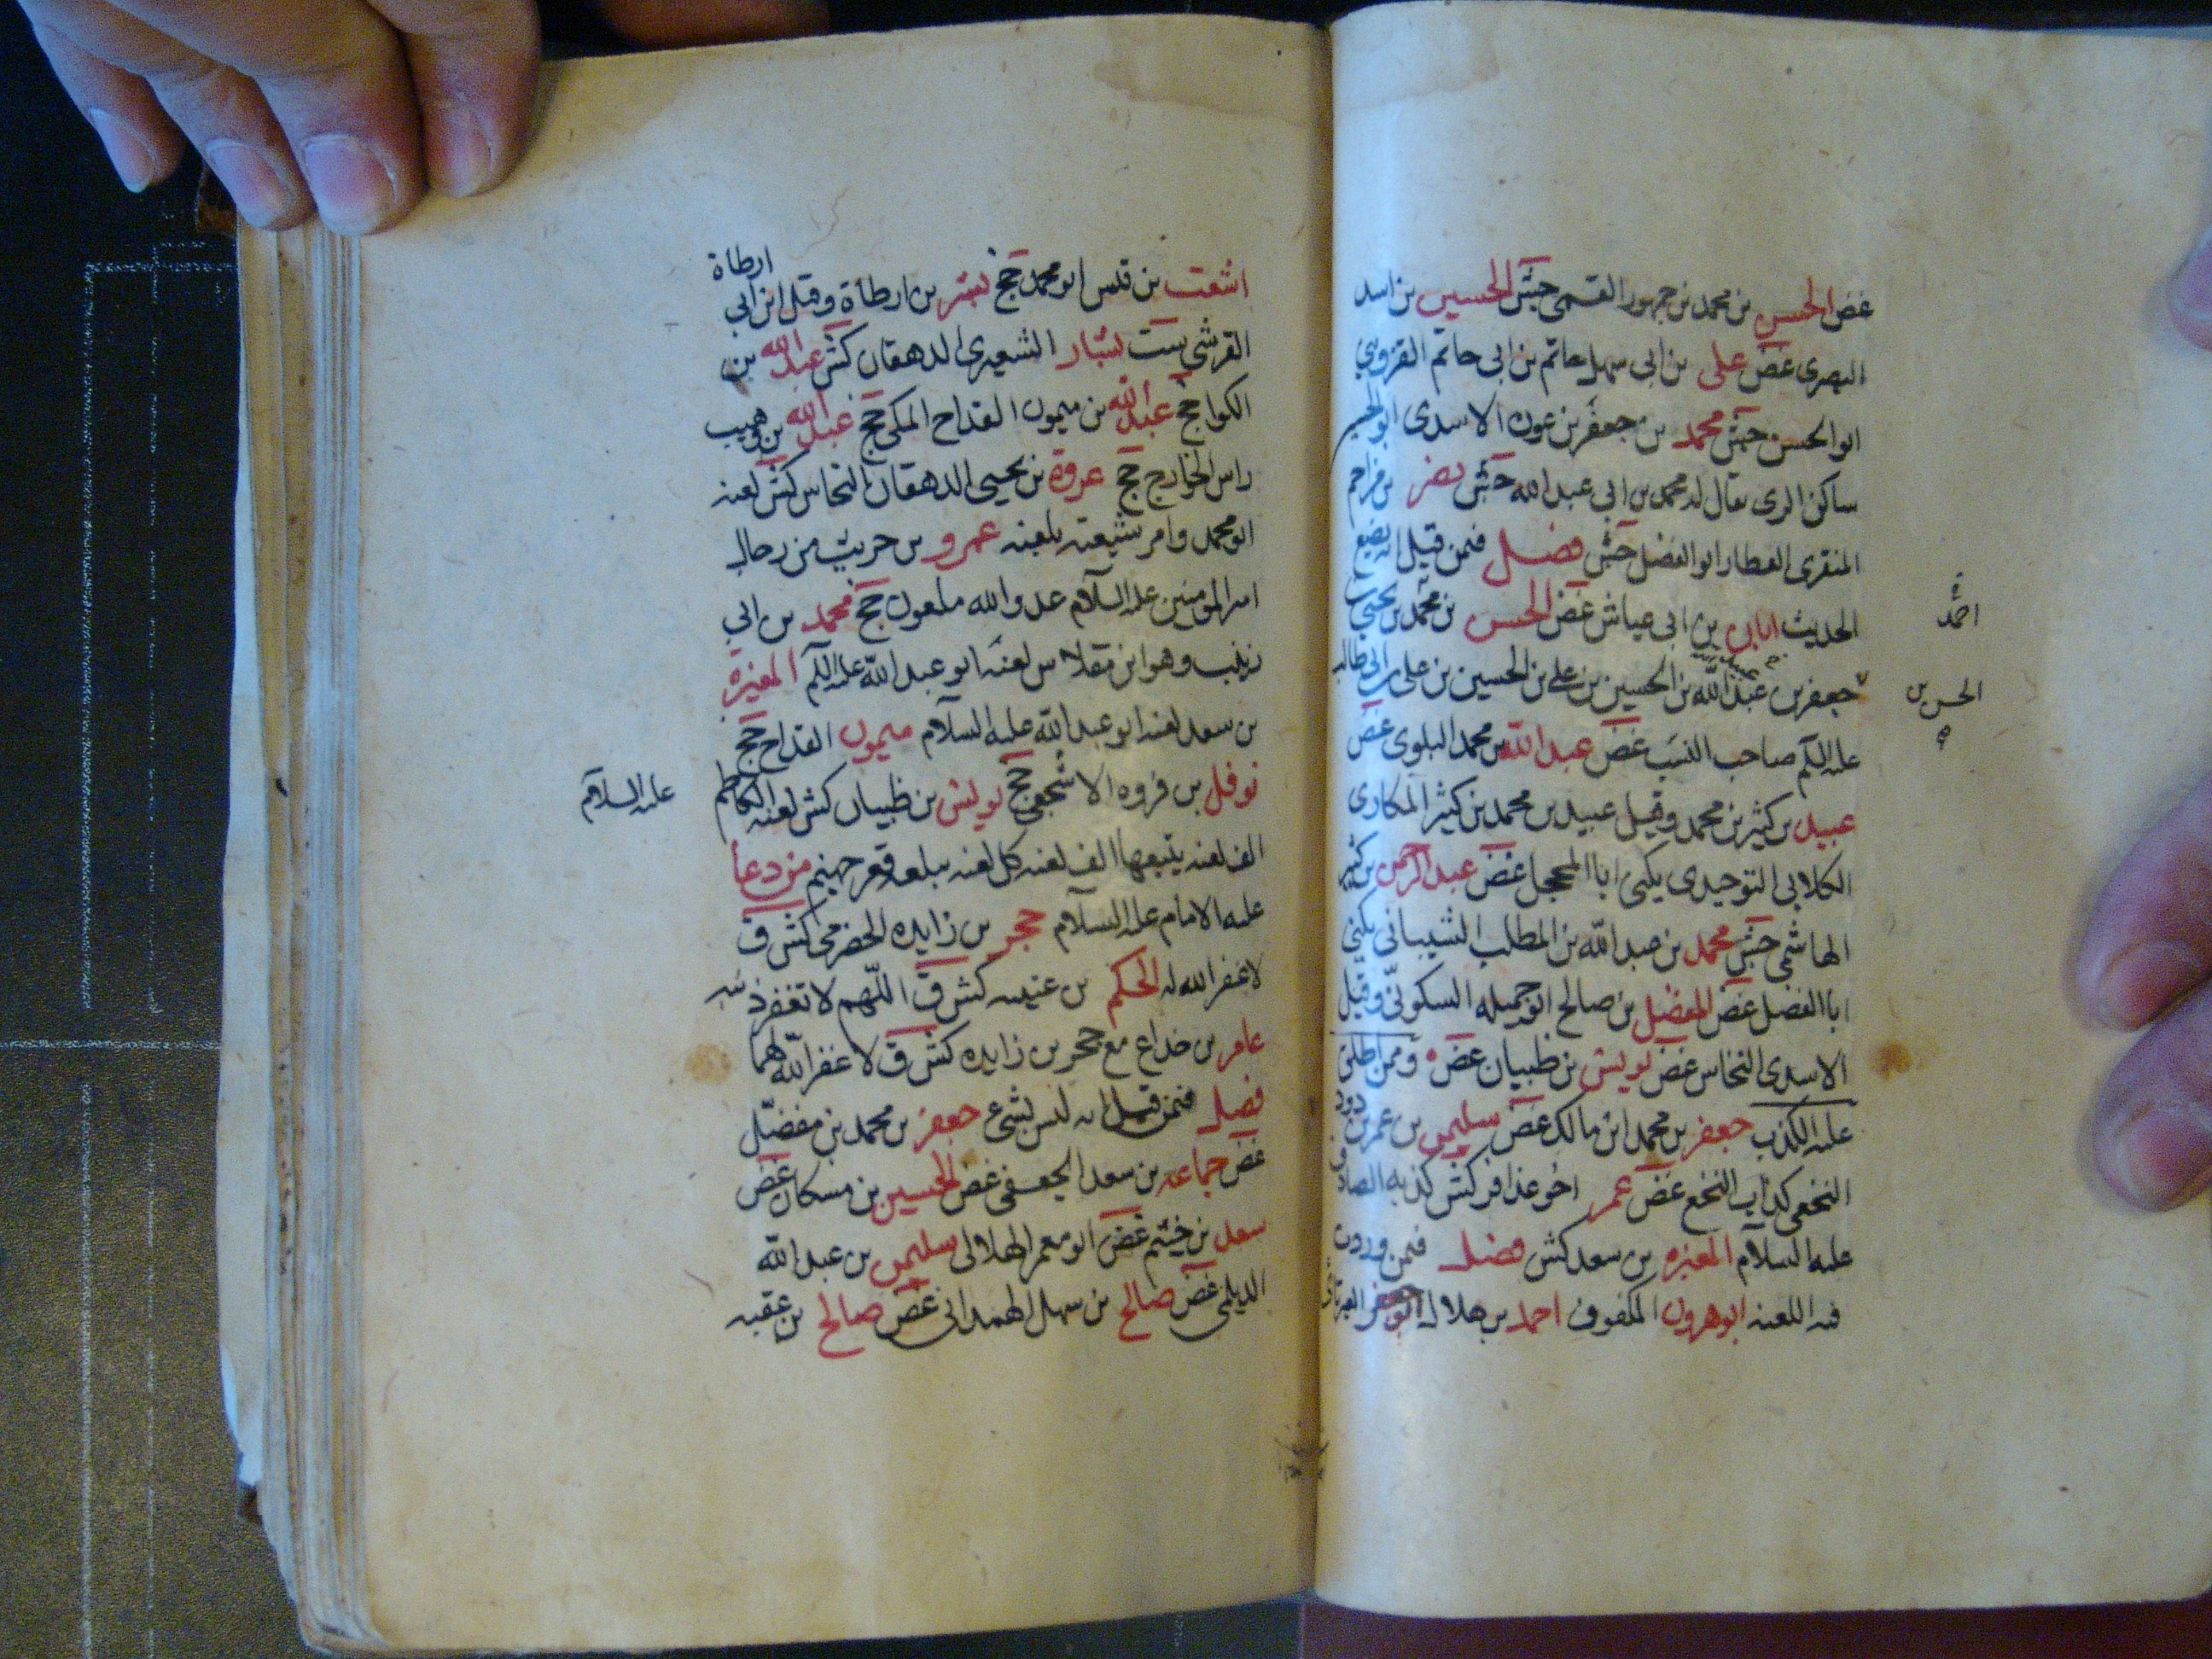 غض الحسن بن محمد بن جمهور القمي جش الحسين بن اسد
البصري غض علي بن ابي سهل حاتم بن ابي حاتم القزويني
ابو الحسن جش محمد بن جعفر بن عون الاسدي ابو الحسين
ساكن الري يقال له محمد بن ابي عبد الله جش نصر بن مزاحم
المنقري العطار ابو الفضل جش فصل فيمن قيل انه يضع
الحديث ابان بن ابي عياش غض الحسن بن محمد بن يحيى
احمد
جعفر بن عبد الله بن الحسين بن علي بن الحسين بن علي بن ابي طالب
الحسن بن
عليه السلم صاحب النسب غض عبد الله بن محمد البلوي غض
عبيد بن كثير بن محمد وقيل عبيد بن محمد بن كثير المكاري
الكلابي التوحيدي يكنى ابا المحجل غض عبد الرحمن بن كثير
الهاشمي جش محمد بن عبد الله بن المطلب الشيباني يكنى
ابا الفضل غض المفضل بن صالح ابو جميله السكوني وقيل
الاسدي النخاس غض يونس بن ظبيان غض ه وممن اطلق
عليه الكذب جعفر بن محمد ابن مالك غض سليمن بن عمر بن دود
النخعي كذاب النخع غض عمر اخو عذافر كش كذبه الصادق
عليه السلام المغيره بن سعد كش فصل فيمن وردت
فيه اللعنه ابو هرون المكفوف احمد بن هلال ابو جعفر العبرتائي
اشعث بن قيس ابو محمد جخ بشر بن ارطاة وقيل ابن ابي ارطاة
القرشي ست بشار الشعيري الدهقان كش عبد الله بن
الكوا جخ عبد الله بن ميمون القداح المكي جخ عبد الله بن وهب
راس الخوارج جخ عروة بن يحيى الدهقان النخاس كش لعنه
ابو محمد وامر شيعته بلعنه عمرو بن حريث من رجال
امير المومنين عليه السلام عدو الله ملعون جخ محمد بن ابي
زينب وهو ابن مقلاس لعنه ابو عبد الله عليه السلم المغيرة
بن سعد لعنه ابو عبد الله عليه السلام ميمون القداح جخ
نوفل بن فروه الاشجعي جخ يونس بن ظبيان كش لعنه الكاظم عليه السلام
الف لعنه يتبعها الف لعنه كل لعنه يبلغه قعر جهنم من دعا
عليه الامام عليه السلام حجر بن زايده الحضرمي كش ق
لا غفر الله له الحكم بن عتيبه كش ق اللهم لا تغفر ذنبه
عامر بن خداع مع حجر بن زايده كش ق لا غفر الله لهما
فصل فيمن قيل انه ليس بشيء جعفر بن محمد بن مفضل
غض جماعه بن سعد الجعفي غض الحسين بن مسكان غض
سعد بن خيثم غض ابو معمر الهلالي سليمن بن عبد الله
الديلمي غض صالح بن سهل الهمداني غض صالح بن عقبه